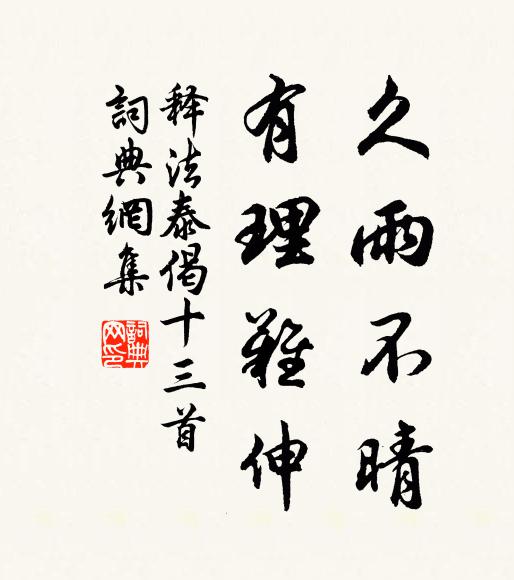 久雨不晴
有理難伸
释法泰偈十三首
詞典網集
詞典
网印